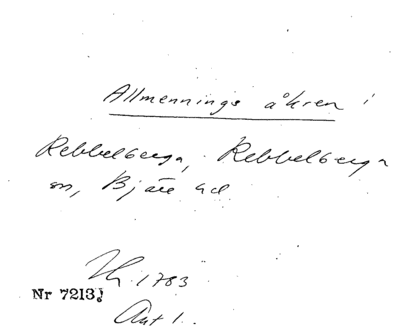 Allmennings åkren i
Rebbelberga, Rebbelberga
sn, Bjäre hd
Lh. 1783
Nr 7213
Akt 1.